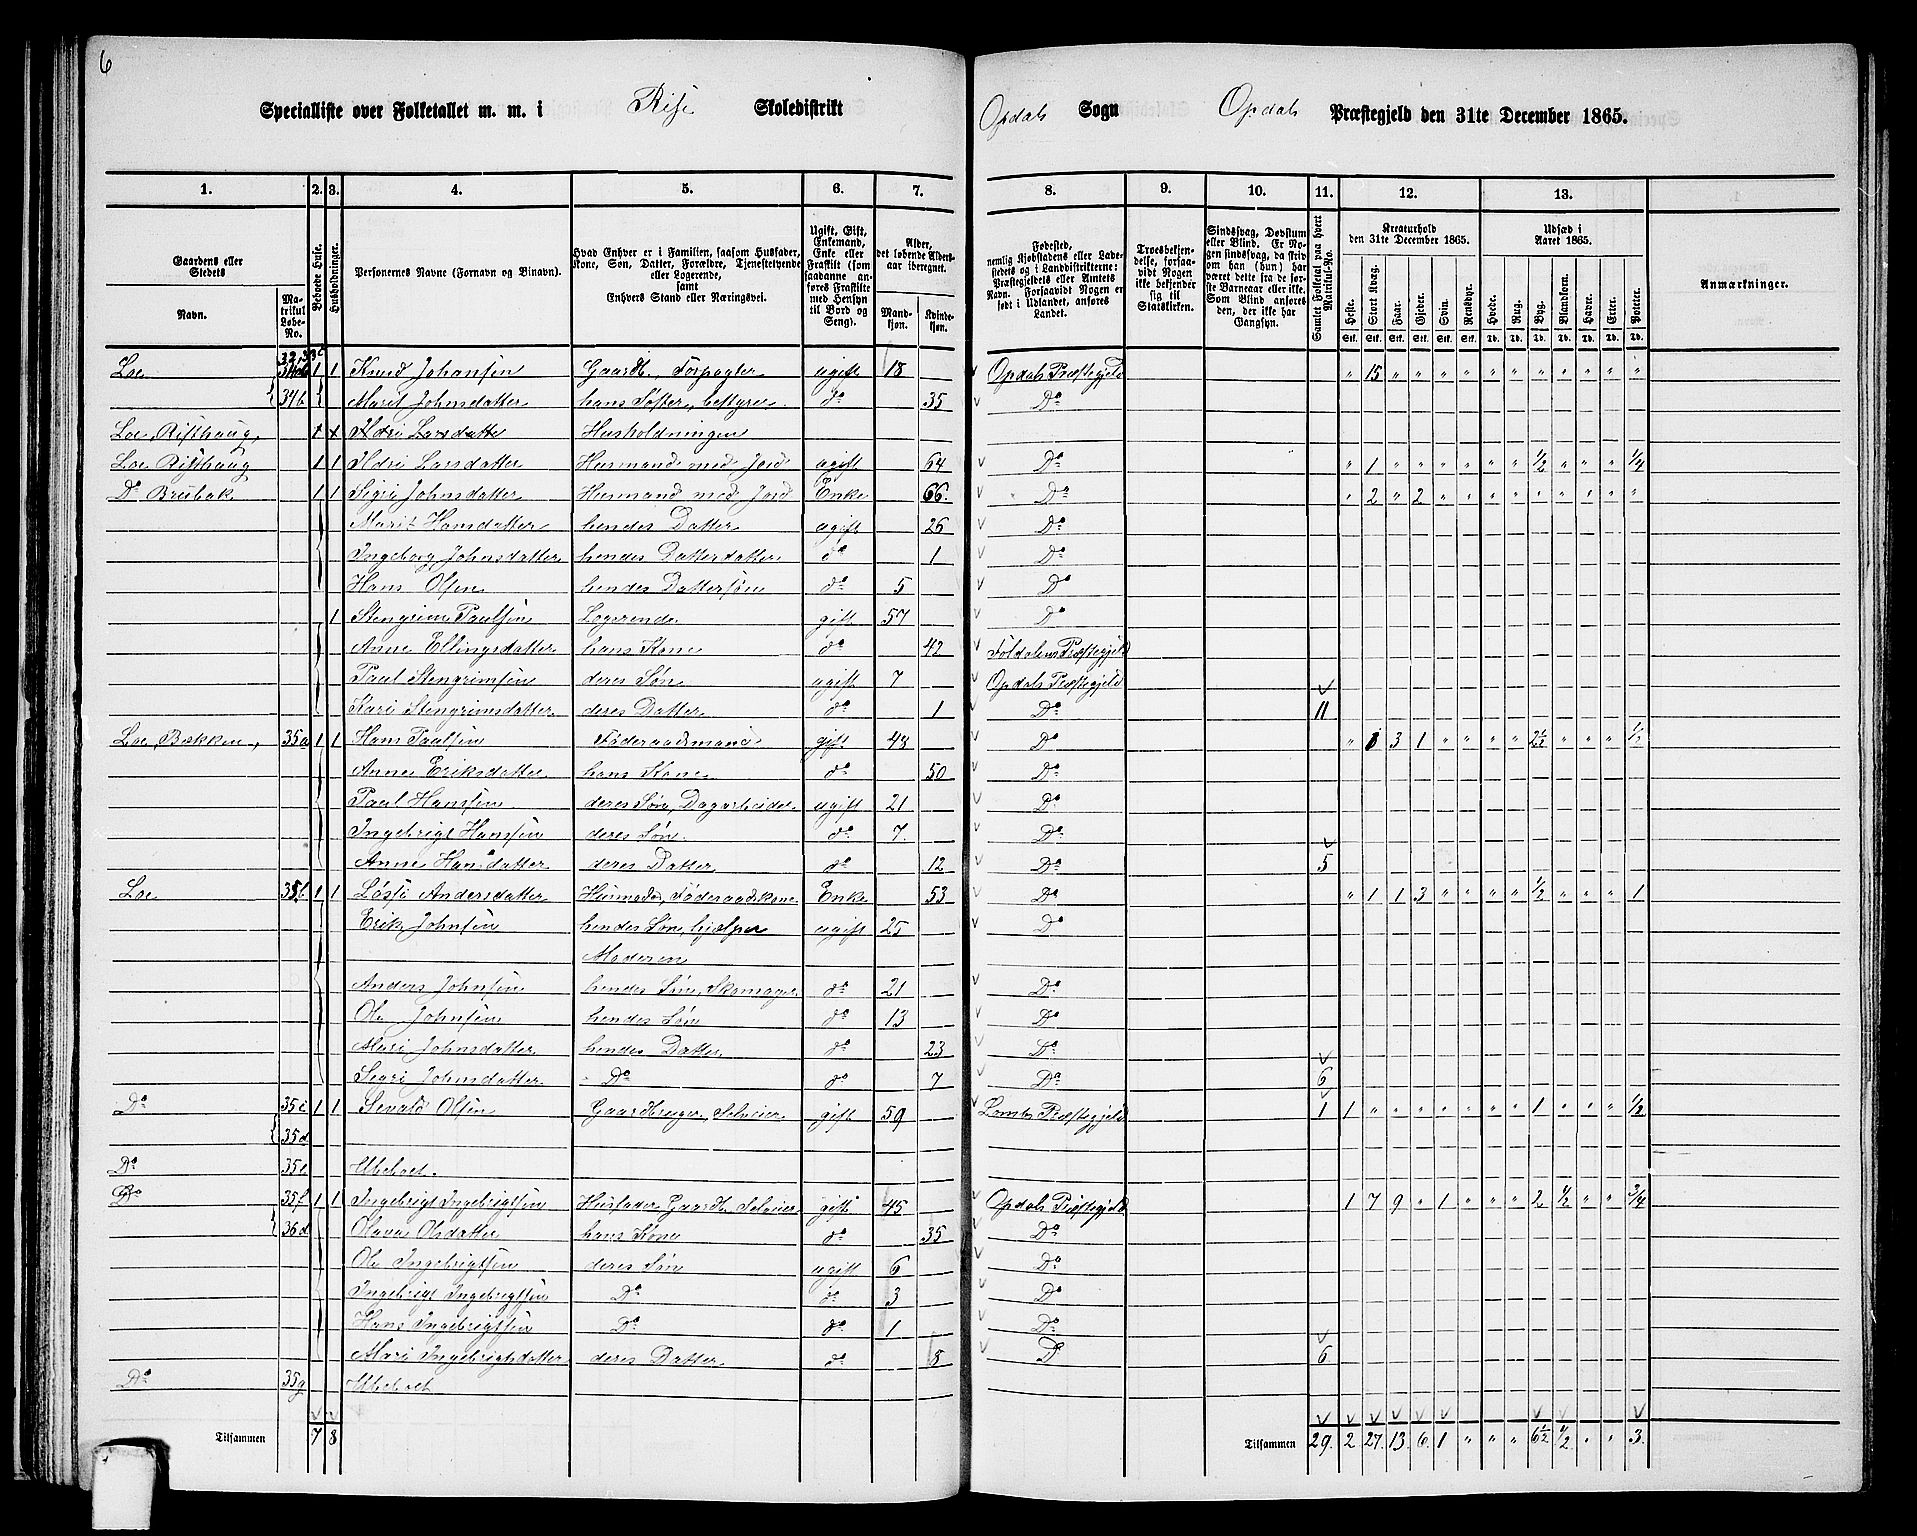 6
Specialliste over Folketallet m. m. i Rise Skoledistrikt Opdals Sogn Opdals Præstegjeld den 31te December 1865.
1. 2. 3. 4. 5. 6. 7. 8. 9. 10. 11. 12. 13.
Gaardens eller Stedets Navn. Matrikul Løbe-No. Beboede Huse. Husholdninger. Personernes Navne (Fornavn og Binavn).
Hvad Enhver er i Familien, saasom Husfader, Kone, Søn, Datter, Forældre, Tjenestetyende eller Logerende, samt Enhvers Stand eller Næringsvei.
Ugift, Gift, Enkemand, Enke eller Fraskilt (som saadanne anføres Fraskilte med Hensyn til Bord og Seng).
Alder, det løbende Aldersaar iberegnet. Mandkjøn. Kvindekjøn.
Fødested, nemlig Kjøbstadens eller Ladestedets og i Landdistrikterne: Præstegjeldets eller Amtets Navn. Forsaavidt Nogen er født i Udlandet, anføres Landet.
Troesbekjendelse, forsaavidt Nogen ikke bekjender sig til Statskirken.
Sindssvag, Døvstum eller Blind. Er Nogen sindssvag, da skriv om han (hun) har været dette fra de første Barneaar eller ikke. Som Blind anføres den, der ikke har Gangsyn.
Samlet Folketal paa hvert Matrikul-No.
Kreaturhold den 31te December 1865. Heste. Stort Kvæg. Faar. Gjeder. Svin. Rensdyr.
Udsæd i Aaret 1865. Hvede. Rug. Byg. Blandkorn. Havre. Erter. Poteter.
Anmærkninger.
Loe 1 1 Knud Johansen Gaardb., Forpagter ugift 18 Opdals Præstegjeld " 15 " " " " " " " " " " "
34b Marit Johnsdatter hans Søster, bestyrer do 35 Do
Loe, Risthaug, Ildri Larsdatter Husholdningen
Loe Risthaug 1 1 Ildri Larsdatter Husmand med Jord ugift 64 Do " 1 " " " " " " 1/2 " " " 1/4
Do Brubak 1 1 Sigri Johnsdatter Husmand med Jord Enke 66 Do " 2 " 2 " " " " " " " " "
Marit Hansdatter hendes Datter ugift 26 Do
Ingeborg Johnsdatter hendes Datterdatter do 1 Do
Hans Olsen hendes Dattersøn do 5 Do
1 Stengrim Paulsen Logerende gift 57 Do
Anne Ellingsdatter hans Kone do 42 Foldalens Præstegjeld
Paul Stengrimsen deres Søn ugift 7 Opdals Præstegjeld
Kari Stengrimsdatter deres Datter do 1 Do 11
Loe, Bækken, 35a 1 1 Hans Paulsen Føderaadsmand gift 48 Do " 3 1 " " " " 2 1/2 " " " 1/2
Anne Eriksdatter hans Kone do 50 Do
Paul Hansen deres Søn, Dagarbeider ugift 21 Do
Ingebrigt Hansen deres Søn do 7 Do
Anne Hansdatter deres Datter do 12 Do 5
Loe 35b 1 1 Løsfi Andersdatter Husmoder, Føderaadskone Enke 53 Do " 1 1 3 " " " " 1/2 " " " 1
Erik Johnsen hendes Søn, hjælper ugift 25 Do
Moderen
Anders Johnsen hendes Søn, Skomager do 21 Do
Ole Johnsen hendes Søn do 13 Do
Mari Johnsdatter hendes Datter do 23 Do
Sigri Johnsdatter Do do 7 Do 6
Do 35c 1 1 Sivald Olsen Gaardbruger, Selveier gift 59 Lombs Præstegjeld 1 1 " " " " " " " 1 " " " 1/2
35d
Do 35e Ubeboet.
Do 35f 1 1 Ingebrigt Ingebrigtsen Husfader Gaardb. Selveier gift 45 Opdals Præstegjeld 1 7 9 " 1 " " " 2 1/2 " " 3/4
36d Olava Olsdatter hans Kone do 35 Do
Ole Ingebrigtsen deres Søn ugift 6 Do
Ingebrigt Ingebrigtsen Do do 3 Do
Hans Ingebrigtsen Do do 1 Do
Mari Ingebrigtsdatter deres Datter do 8 Do 6
Do 35g Ubeboet
Tilsammen 7 8 Tilsammen 29. 2 27. 13 6 1 " " " 6 1/2 1/2 " " 3.